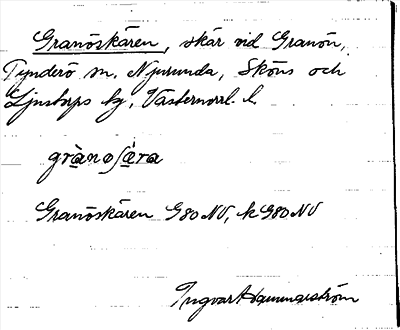 Granöskären, skär vid Granön,
Tynderö sn. Njurunda, Sköns och
Ljustorps tg, Västernorrl. l.
grànoʃæ̀ra
Granöskären G80 NV, k G80 NV
Ingvar Hammarström